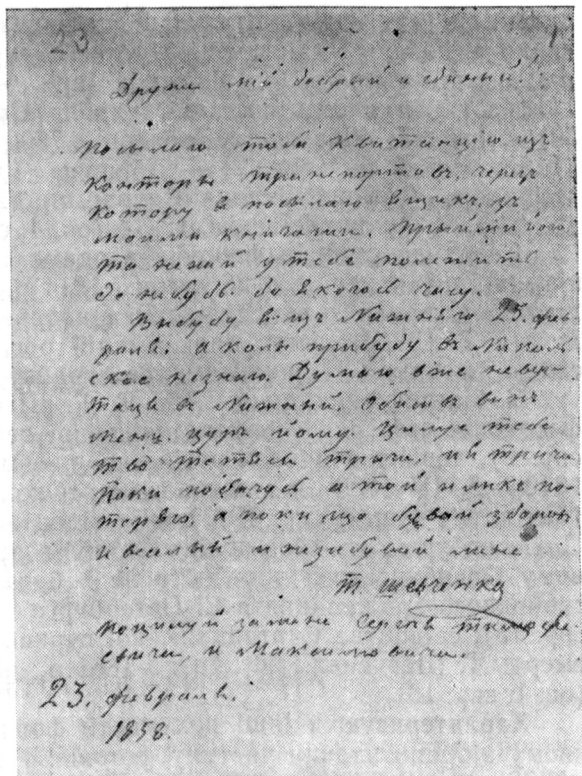 23 1
Друже мій добрый и единый!
посылаю тоби квитанцію изъ
конторы транспортовъ, черезъ
котору я посылаю ящикъ зъ
моими книгами. Прыйми його
та нехай у тебе полежить
де небудь до якогось часу.
Выбуду я изъ Нижнёго 25. фев
раля. а колы прибуду въ Николь
ское незнаю. Думаю вже невер-
мене цуръ йому. Цилую тебе
поки побачусь а той илыкъ по-
а поки що бувай здоровъ
и веселый и незабувай мене
Т. Шевченка
поцилуй за мене Сергея Тимофе
евича, и Максимовича.
23. февраля.
1858.